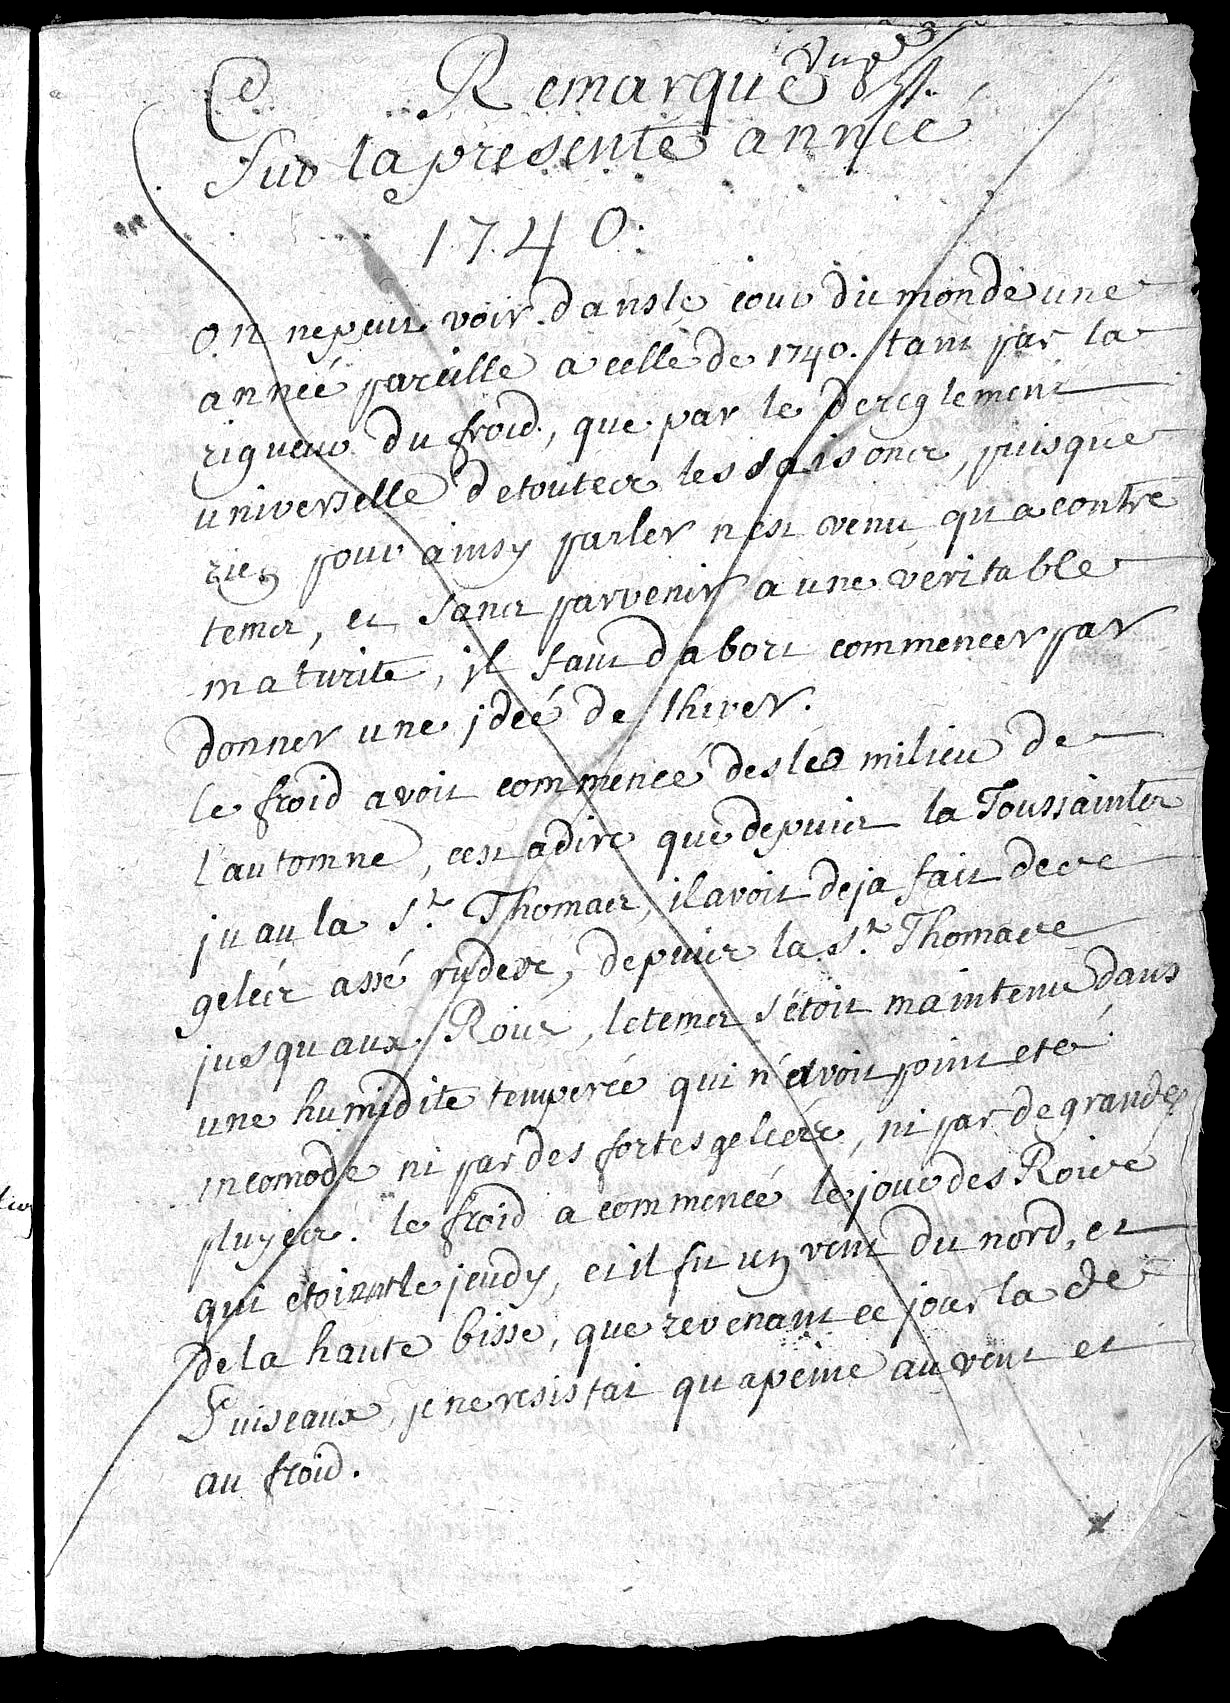 Remarque
Sur la presente année
1740.
on ne peut voir dans le cour du monde une
année pareille a celle de 1740. tant par la
rigueur du froid, que par le dereglement
universelle de toutes les saisons, puisque
rien pour ainsy parler n'est venu qu a contre
tems, et sans parvenir a une veritable
maturité, il faut d abort commencer par
donner une jdeé de lhiver.
le froid avoit commencé des le milieu de
l'automne, cest adire que depuis la Toussaintes
ju au la St. Thomas, il avoit deja fait de ce
geleés assé rudes, depuis la St. Thomas
jusqu aux Rois, le tems s'étoit maintenu dans
une humidité temperée qui n'avoit point eté
incomode ni par des fortes geleés, ni par de grandes
pluyes. le froid a commencé le jour des Rois
qui etoit le jeudy, et il fit un vent du nord, et
de la haute bisse, que revenant ce jour la de
Puiseaux, je ne resistai qu apeine au vent et
au froid.